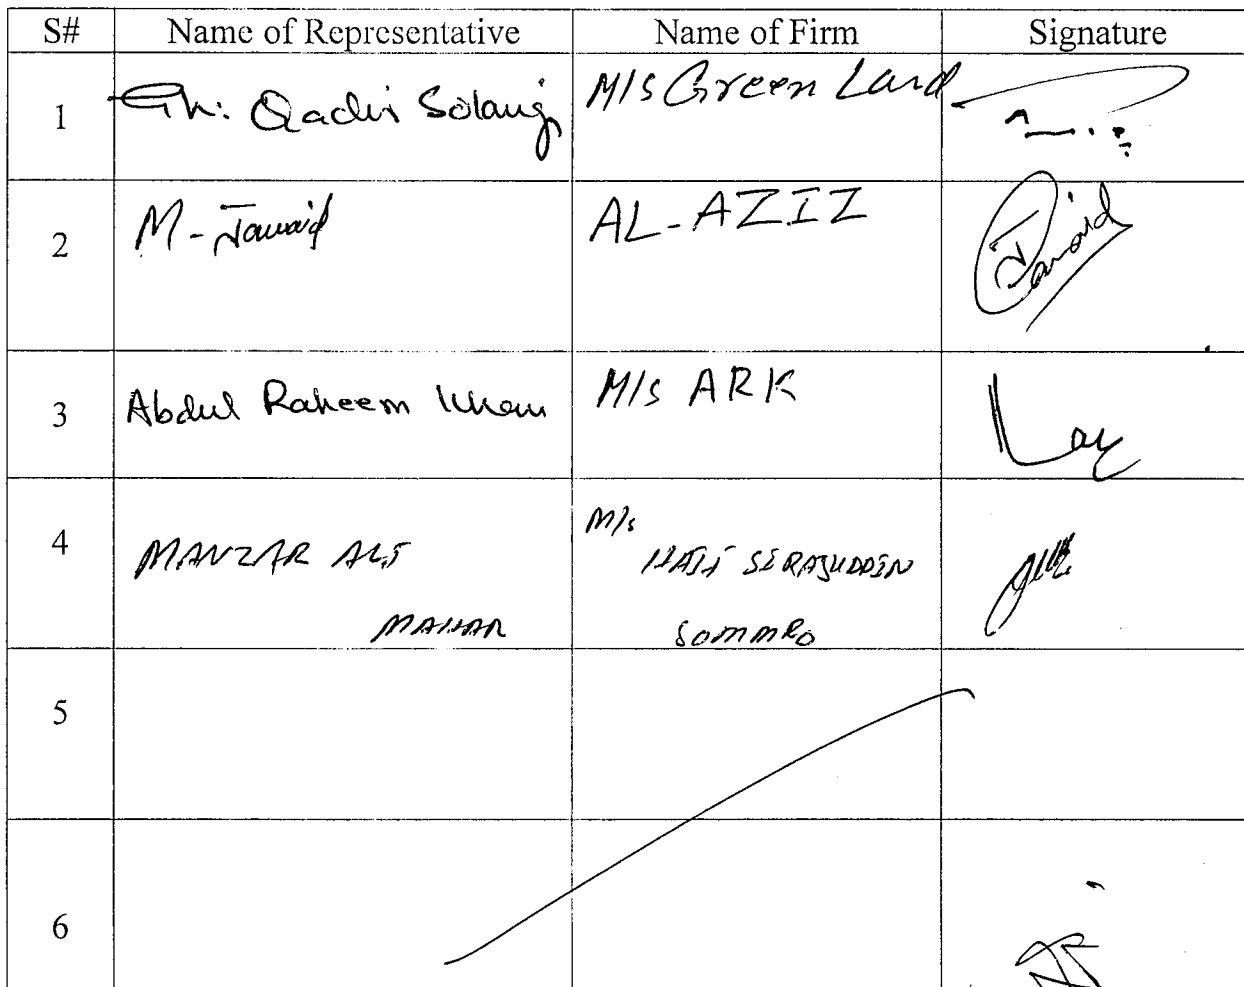 S# Name of Representative Name of Firm Signature
1 Gh: Qadir Solangi M/S Green Land
2 M-Jawaid AL-AZIZ Jawaid
3 Abdul Raheem Khan M/S ARK
4 MANZAR ALI M/s HAJI SERAJUDDIN
MAHAR SOMMRO
5
6